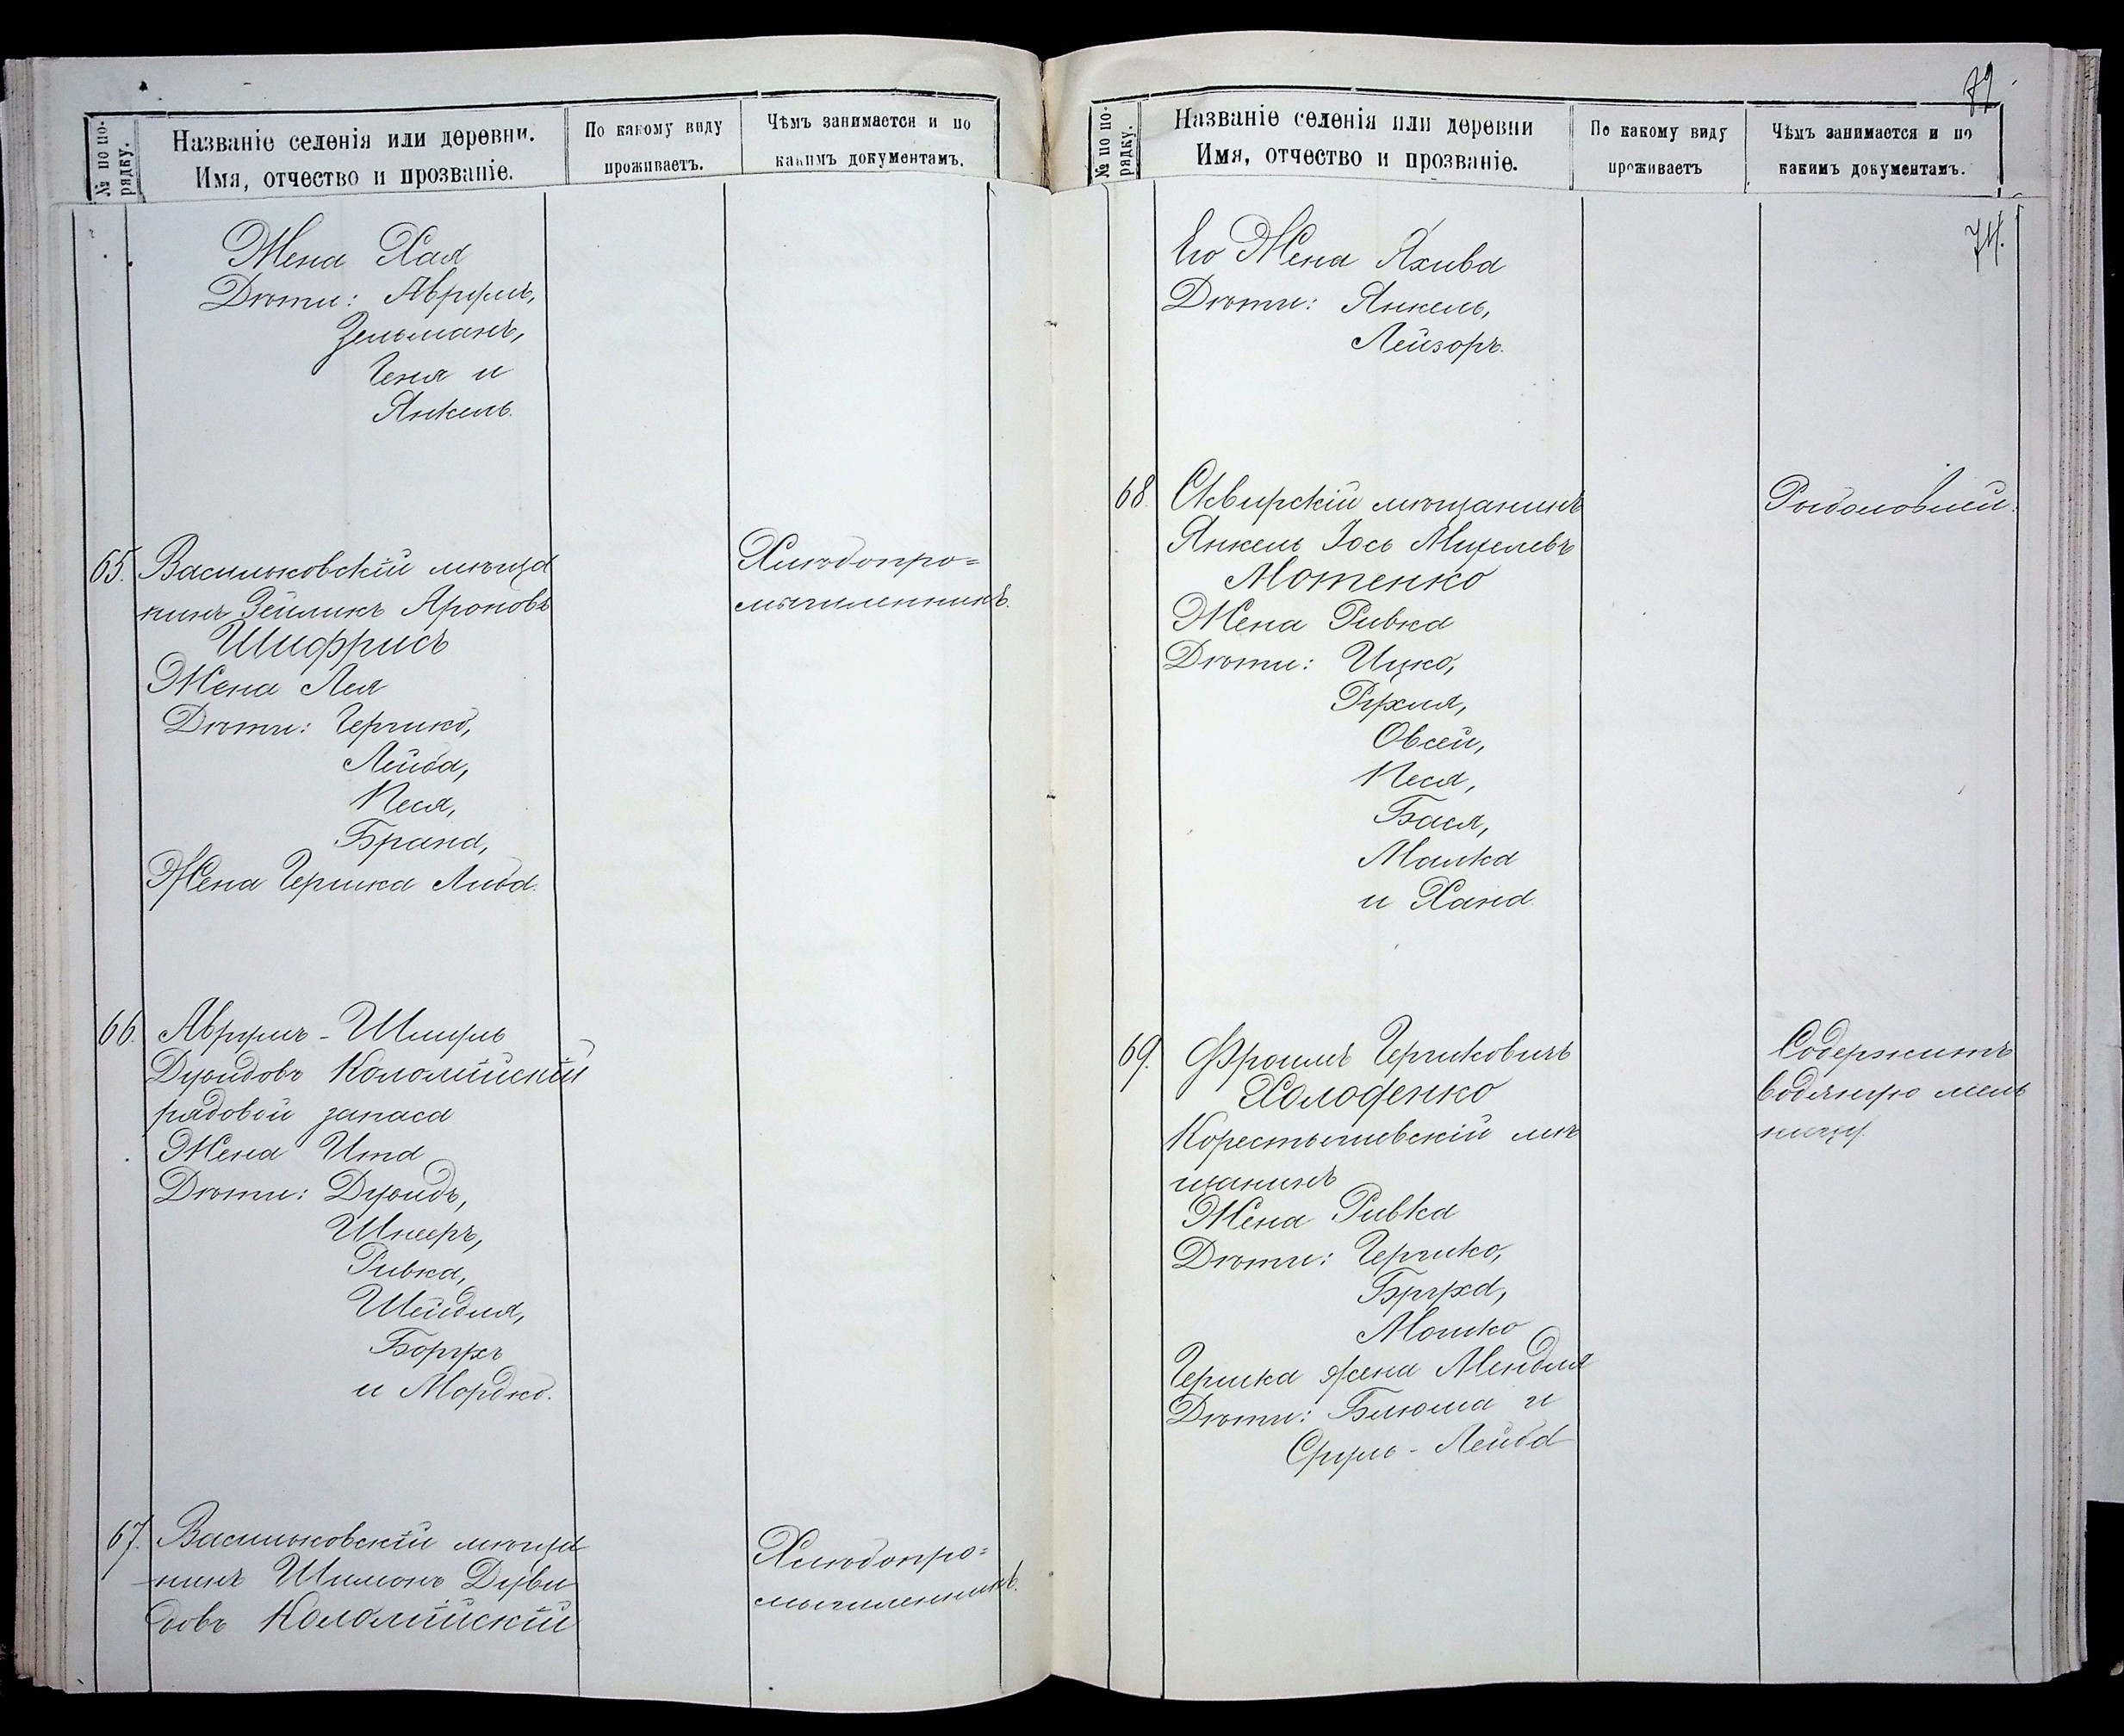 № по по-
рядку.
Названіе селенія или деревни.
Имя, отчество и прозваніе.
По какому виду
проживаетъ.
Чѣмъ занимается и по
какимъ документамъ.
Жена Хая
Дѣти: Аврумъ,
Зельманъ,
Геня и
Янкель.
65. Васильковскій мѣща
нинъ Зейликъ Ароновъ
Шифрисъ
Жена Лея
Дѣти: Гершко,
Лейба,
Песя,
Брана,
Жена Гершка Либа.
Хлѣбопро=
мышленникъ.
66. Аврумъ-Шмуль
Дувидовъ Коломійскій
рядовой запаса
Жена Ита
Дѣти: Дувидъ,
Шнееръ,
Ривка,
Шейдля,
Борухъ
и Мордко.
67. Васильковскій мѣща
нинъ Шимонъ Дуви
довъ Коломійскій
Хлѣбопро=
мышленникъ.
72
№ по по-
рядку.
Названіе селенія или деревни
Имя, отчество и прозваніе.
По какому виду
проживаетъ
Чѣмъ занимается и по
какимъ документамъ.
74.
Его Жена Яхива
Дѣти: Янкель,
Лейзоръ.
68 Сквирскій мѣщанинъ
Янкель Іось Мицелевъ
Мотенко
Жена Ривка
Дѣти: Ицко,
Рухля,
Овсей,
Песя,
Бася,
Малка
и Хана.
Рыболовлей.
69. Фроимъ Гершковичъ
Холоденко
Корестышевскій мѣ
щанинъ
Жена Ривка
Дѣти: Гершко,
Бруха,
Мошко
Гершка жена Мендля
Дѣти: Блюма и
Сруль-Лейба
Содержитъ
водяную мель
ницу.